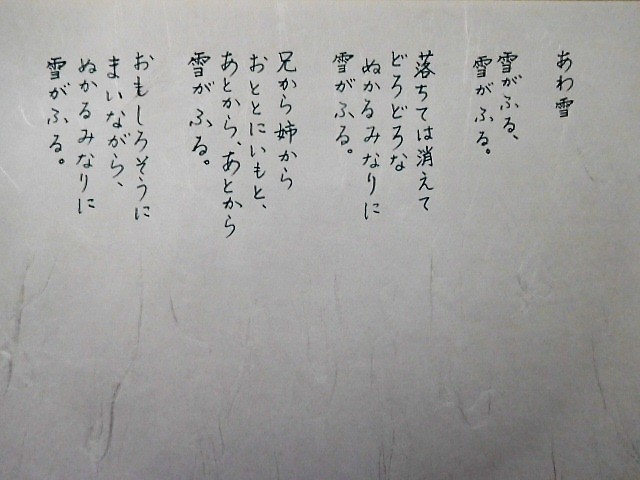 あわ雪
雪がふる、
雪がふる。
落ちては消えて
どろどろな
ぬかるみなりに
雪がふる。
兄から姉から
おととにいもと、
あとから、あとから
雪がふる。
おもしろそうに
まいながら、
ぬかるみなりに
雪がふる。